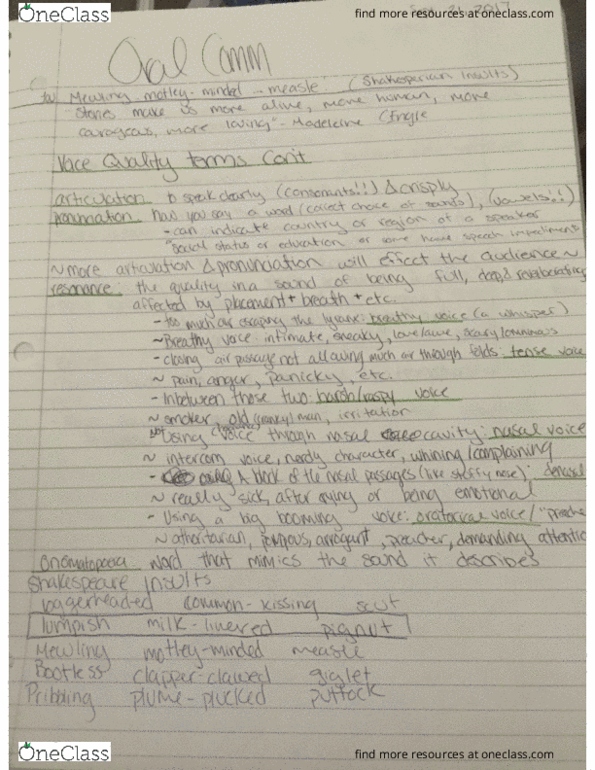 OneClass
find more resources at oneclass.com
2017
Oral Comm
Mewling motley-minded - measle (Shakesperian Insults)
"Stories make us more alive, more human, more
corageous, more loving" - Madeleine L'Engle
Voice Quality terms Cont
articulation to speak clearly (consonants!!) & crisply
pronunciation how you say a word (correct choice of sounds), (vowels!!)
- can indicate country or region of a speaker
social status or education or some have speech impediments
~ more articulation & pronunciation will effect the audience ~
resonance: the quality in a sound of being full, deep & reverberating
affected by placement + breath + etc.
- too much air escaping the larynx: breathy voice (a whisper)
~ Breathy voice: intimate, sneaky, love/awe, scary/ominous
- closing air passage not allowing much air through folds: tense voice
~ pain, anger, panicky, etc.
- inbetween those two: harsh/raspy voice
~ smoker, old (cranky) man, irritation
Using "voice" through nasal cavity: nasal voice
~ intercom voice, nerdy character, whining/complaining
- A block of the nasal passages (like stuffy nose): denasal
~ really sick, after crying or being emotional
- Using a big booming voice: oratorical voice/"preache
~ athoritarian, pompous, arrogant, preacher, demanding attentio
Onomatopoeia word that mimics the sound it describes
Shakespeare Insults
loggerheaded common-kissing scut
lumpish milk-livered pignut
Mewling motley-minded measle
Bootless clapper-clawed giglet
Pribbling plume-plucked puttock
OneClass
find more resources at oneclass.com